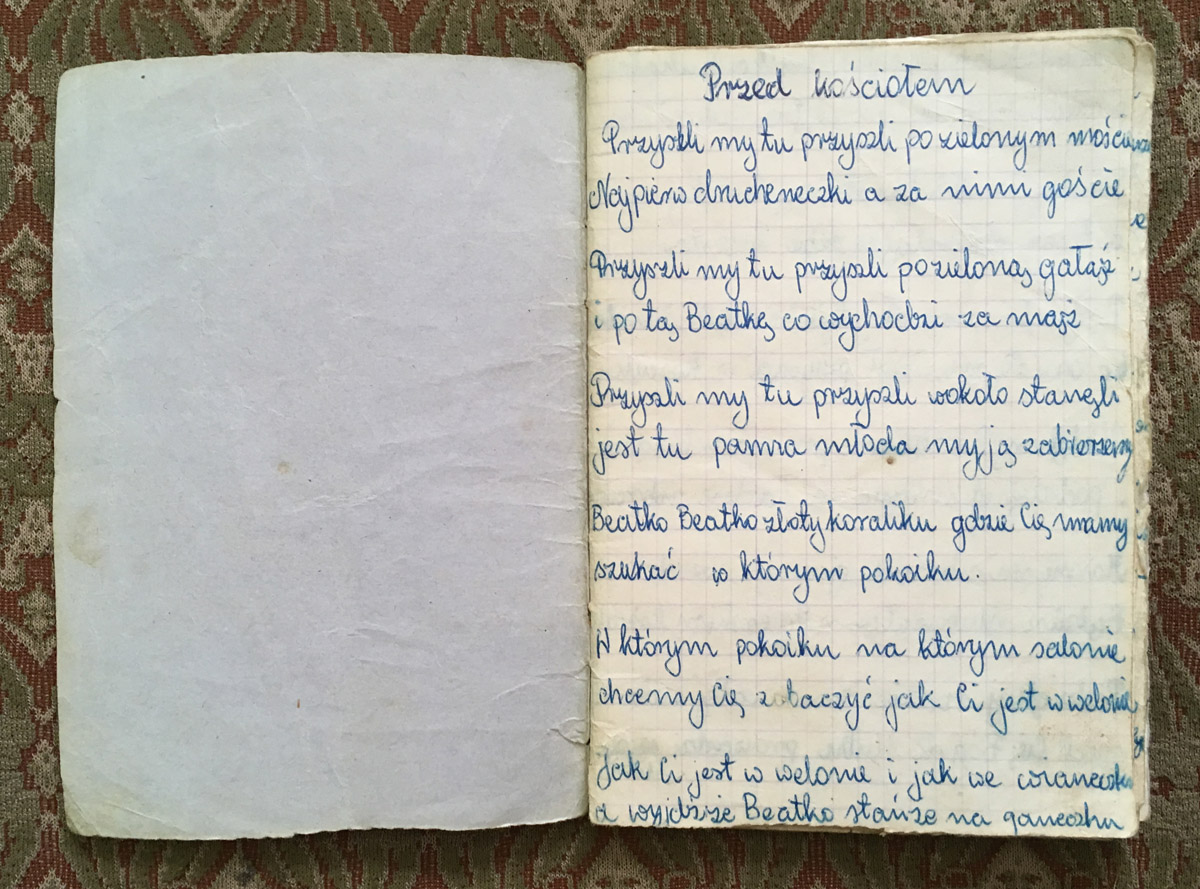 Przed kościołem
Przyszli my tu przyszli po zielonym moście
Najpierw drucheneczki a za nimi goście
Przyszli my tu przyszli po zieloną gałąź
i po tą Beatkę co wychodzi za mąż
Przyszli my tu przyszli wokoło stanęli
jest tu panna młoda my ją zabierzemy
Beatko Beatko złoty koraliku gdzie Cię mamy
szukać w którym pokoiku.
W którym pokoiku na którym salonie
chcemy Cię zobaczyć jak Ci jest w welonie
Jak Ci jest w welonie i jak we wianeczku
a wyjdźże Beatko stańże na ganeczku